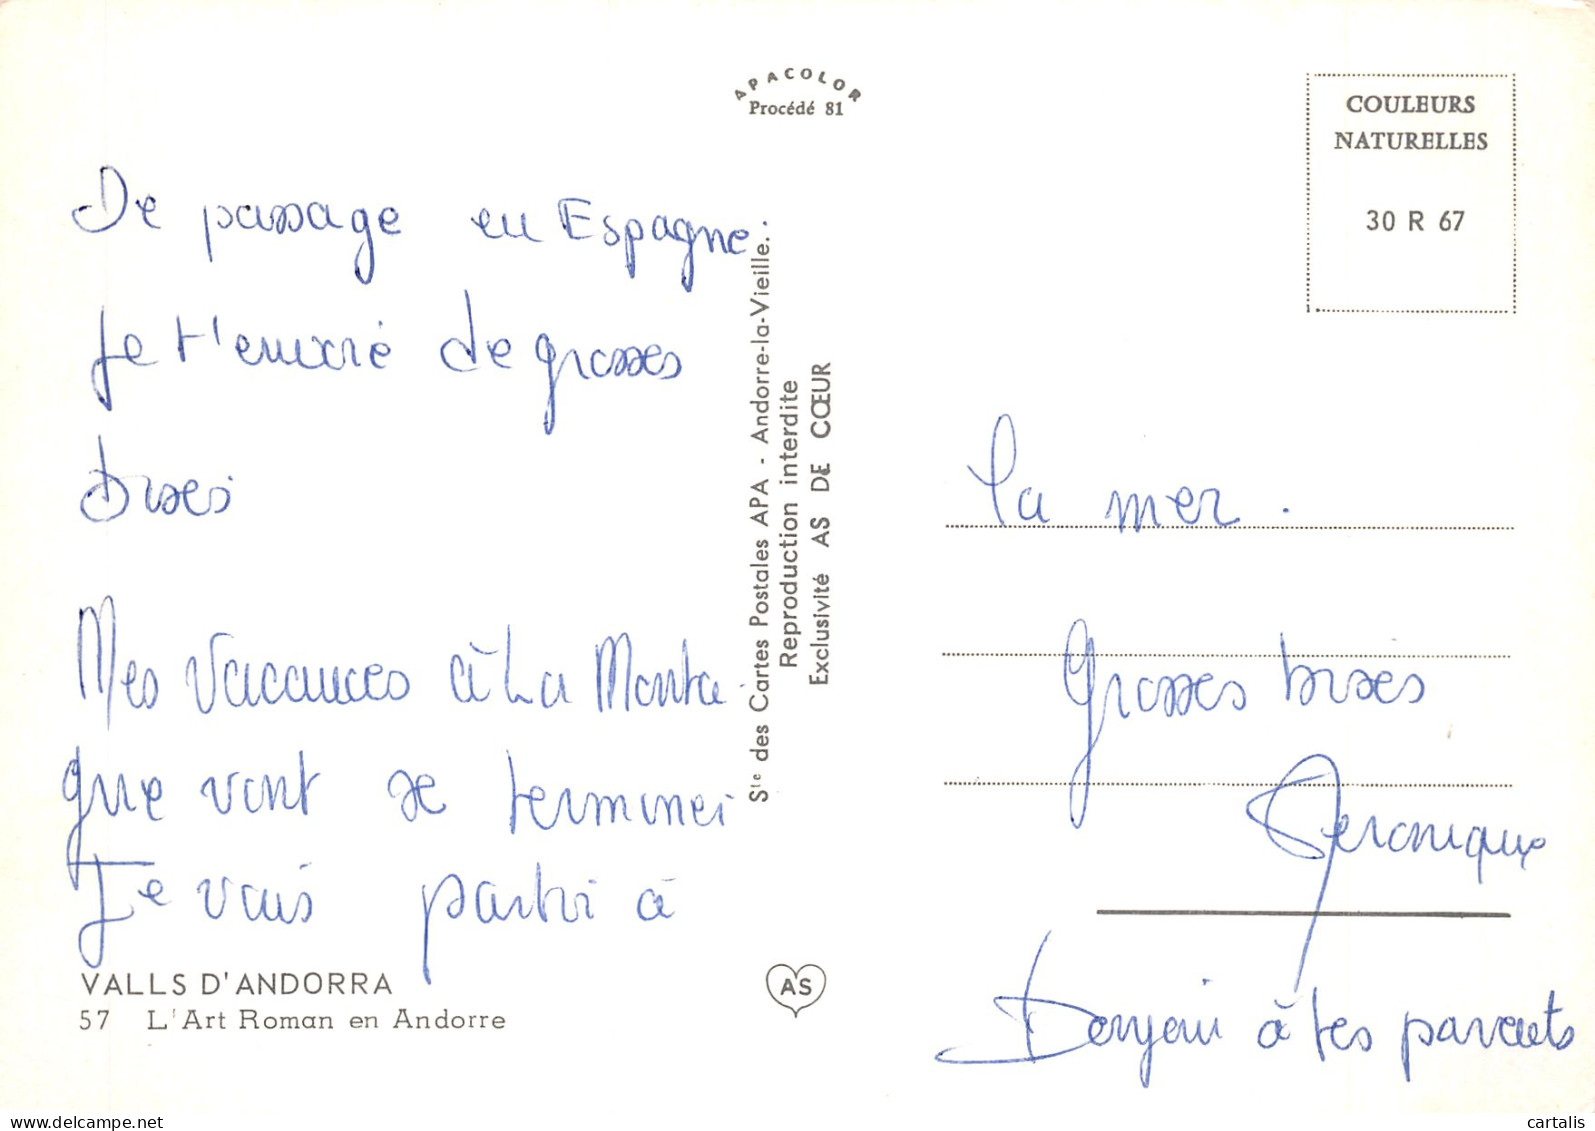 APACOLOR
Procédé 81
COULEURS
NATURELLES
30 R 67
De passage en Espagne.
Je t'envoie de grosses
bises
Mes vacances à La Monta
gne vont se terminer
Je vais partir à
Sté des Cartes Postales APA - Andorre-la-Vieille.
Reproduction interdite
Exclusivité AS DE CŒUR
la mer.
Grosses bises
Veronique
Bonjour à tes parents
VALLS D'ANDORRA
57 L'Art Roman en Andorre
AS
www.delcampe.net
cartalis